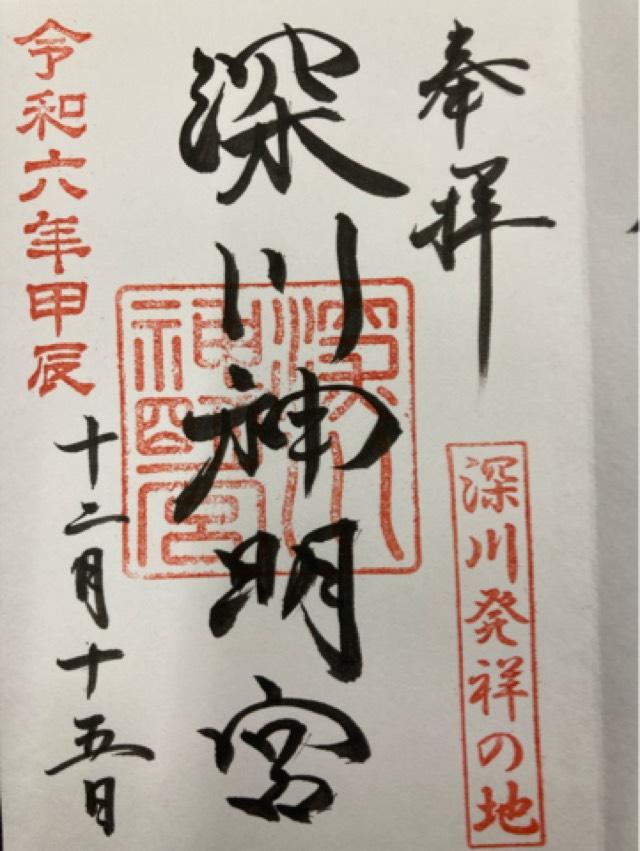 奉拝
深川発祥の地
深川神明宮
深川神明宮
令和六年甲辰
十二月十五日